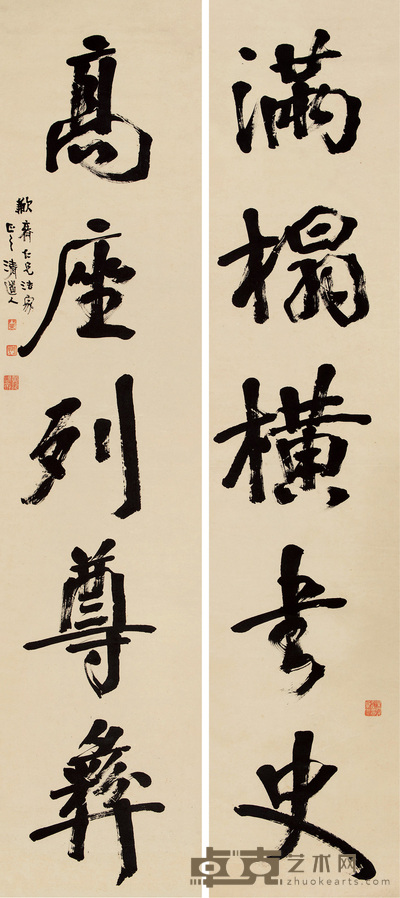 满榻横书史
高座列尊彝
歉斋仁兄法家
正之 清道人
卓克艺术网
zhuokearts.com